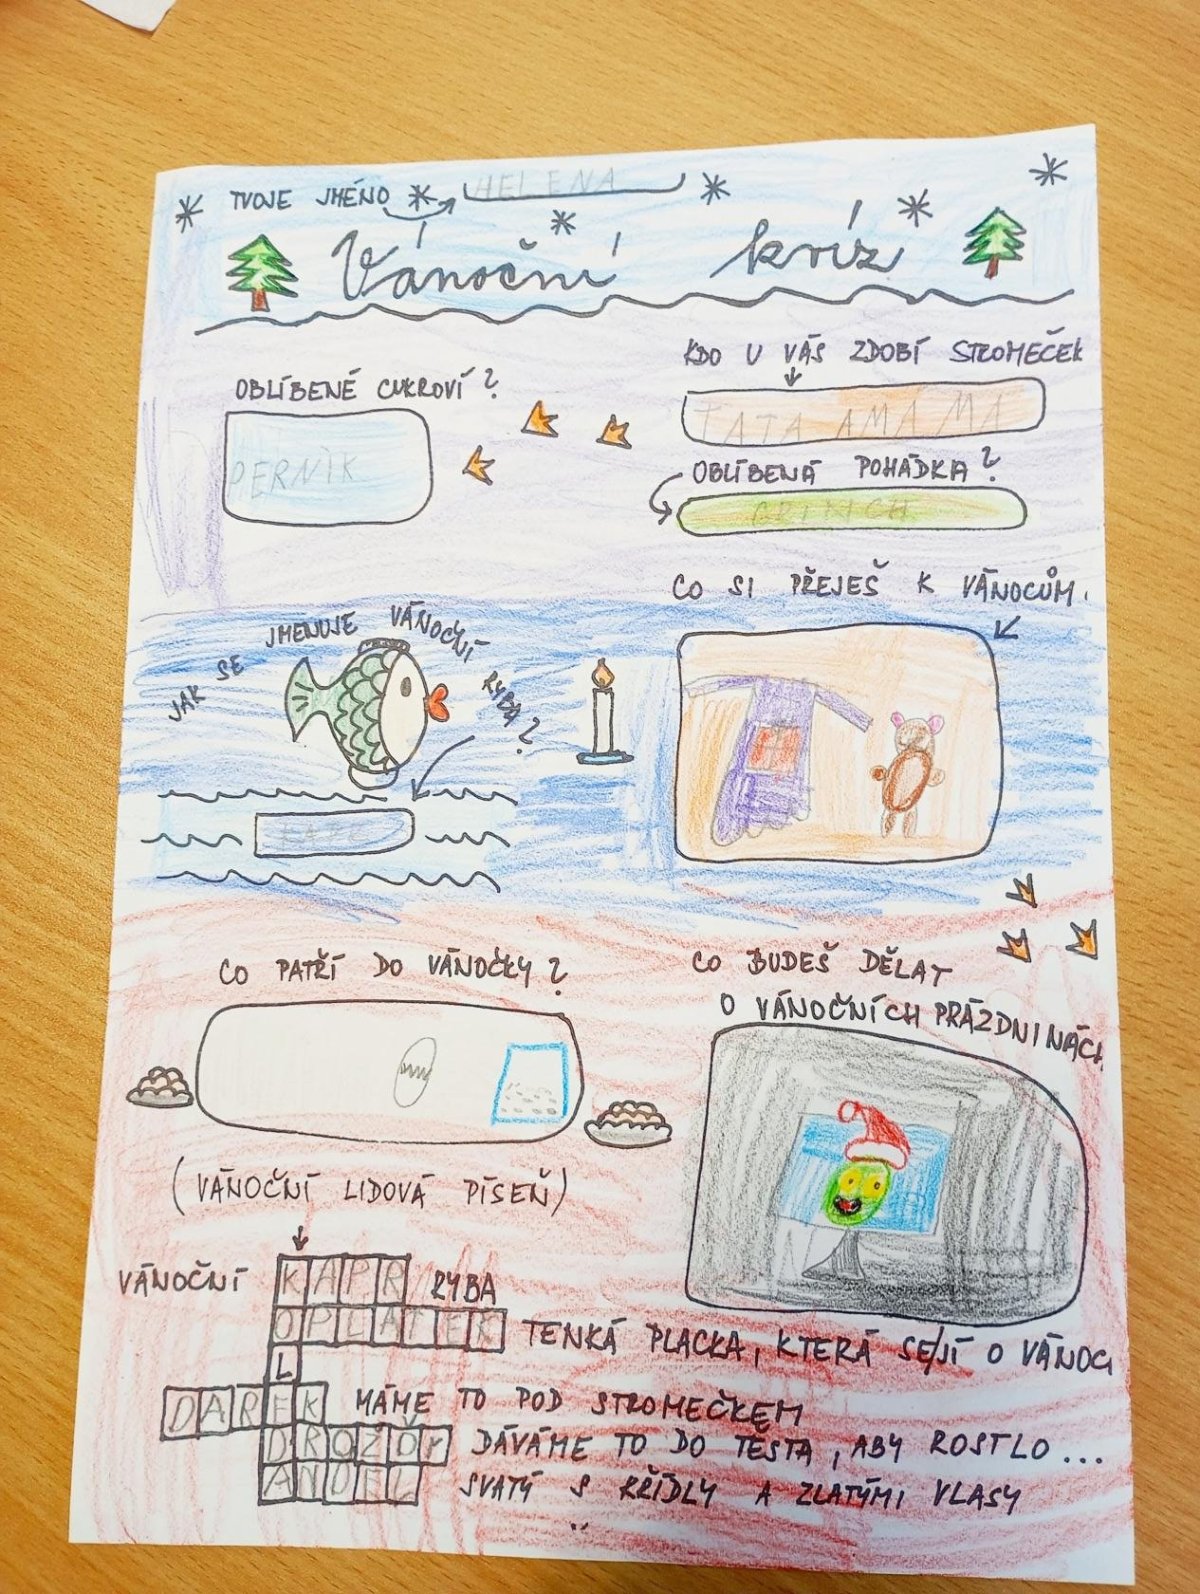 TVOJE JMÉNO HELENA
Vánoční kvíz
OBLÍBENÉ CUKROVÍ?
PERNÍK
KDO U VÁS ZDOBÍ STROMEČEK
TATA AMA MA
OBLÍBENÁ POHÁDKA?
GRINCH
CO SI PŘEJEŠ K VÁNOCŮM
JAK SE JMENUJE VÁNOČNÍ RYBA?
KAPR
CO PATŘÍ DO VÁNOČKY?
CO BUDEŠ DĚLAT
O VÁNOČNÍCH PRÁZDNINÁCH
(VÁNOČNÍ LIDOVÁ PÍSEŇ)
VÁNOČNÍ KAPR RYBA
OPLATEK TENKÁ PLACKA, KTERÁ SE JÍ O VÁNOC
L
DAREK MÁME TO POD STROMEČKEM
DROZDÝ DÁVÁME TO DO TĚSTA, ABY ROSTLO...
ANDEL SVATÝ S KŘÍDLY A ZLATÝMI VLASY